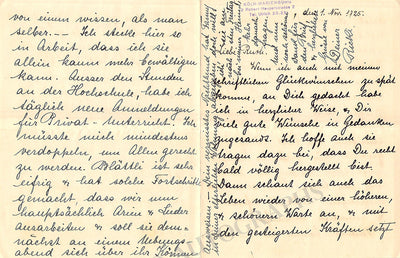 KÖLN-MARIENBURG
den 7. Nov. 1925.
Wenn ich auch mit meinem
schriftlichen Glückwünschen zu spät
komme, an Dich gedacht habe
ich in herzlicher Weise, & Dir
viele gute Wünsche in Gedanken
zugesandt. Ich hoffe auch sie
tragen dazu bei, dass Du recht
bald völlig hergestellt bist.
Dann schaut sich auch das
Leben wieder von einer höhern,
& schönern Warte an, & mit
den gesteigerten Kräften setzt
von einem wissen, als man
selber. -- Ich stecke hier so
in Arbeit, dass ich sie
allein kaum mehr bewältigen
kann. Ausser den Stunden
an der Hochschule, habe ich
täglich neue Anmeldungen
für Privat-Unterricht. Ich
müsste mich mindestens
verdoppeln, um Allen gerecht
zu werden. Blättli ist sehr
eifrig & hat solche Fortschritte
gemacht, dass wir nun
hauptsächlich Arien & Lieder
ausarbeiten & soll sie dem-
nächst an einem Uebungs-
abend sich über ihr Können